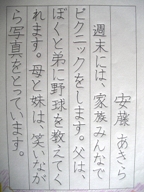 安藤 あきら
週末には、家族みんなで
ピクニックをします。父は、
ぼくと弟に野球を教えてく
れます。母と妹は笑いなが
ら写真をとっています。